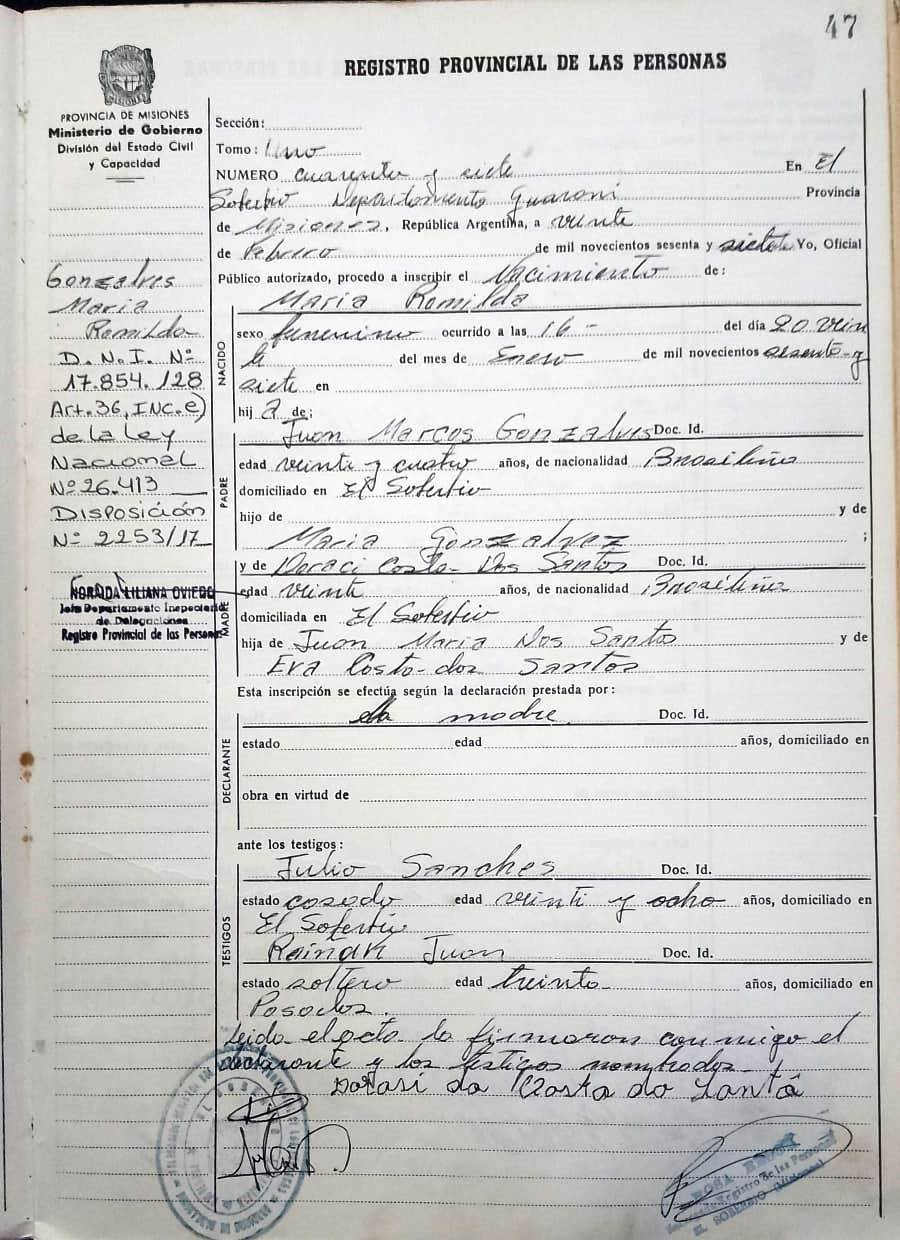 47
REGISTRO PROVINCIAL DE LAS PERSONAS
PROVINCIA DE MISIONES
Ministerio de Gobierno
División del Estado Civil
y Capacidad
Gonzalves
Maria
Romilda
D.N.I. Nº
17.854.128
Art. 36, INC. e)
de la Ley
Nacional
Nº 26.413
Disposición
Nº 2253/17
NORAIDA LILIANA OVIEDO
Jefa Departamento Inspectoría
de Delegaciones
Registro Provincial de las Personas
Sección:
Tomo: Uno
NUMERO cuarenta y siete En El
Soberbio Departamento Guarani Provincia
de Misiones, República Argentina, a veinte
de Febrero de mil novecientos sesenta y siete Yo, Oficial
Público autorizado, procedo a inscribir el Nacimiento de:
NACIDO
Maria Romilda
sexo femenino ocurrido a las 16- del día 20 vein
te del mes de Enero de mil novecientos sesenta y
siete en
hij a de;
PADRE
Juan Marcos Gonzalvis Doc. Id.
edad veinti y cuatro años, de nacionalidad Brasileña
domiciliado en El Soberbio
hijo de y de
Maria Gonzalvez ;
MADRE
y de Doraci Costa Dos Santos Doc. Id.
edad veinte años, de nacionalidad Brasileña
domiciliada en El Soberbio
hija de Juan Maria Dos Santos y de
Eva Costa dos Santos
Esta inscripción se efectúa según la declaración prestada por:
DECLARANTE
la madre Doc. Id.
estado edad años, domiciliado en
obra en virtud de
ante los testigos:
TESTIGOS
Julio Sanches Doc. Id.
estado casado edad veinti y ocho años, domiciliado en
El Soberbio
Juan Doc. Id.
estado soltero edad treinta años, domiciliado en
Posadas.
Leida el acta la firmaron conmigo el
declarante y los testigos nombrados
Dorasi da Costa do Santô
ROSA
Registro de las Personas
EL SOBERBIO (Misiones)